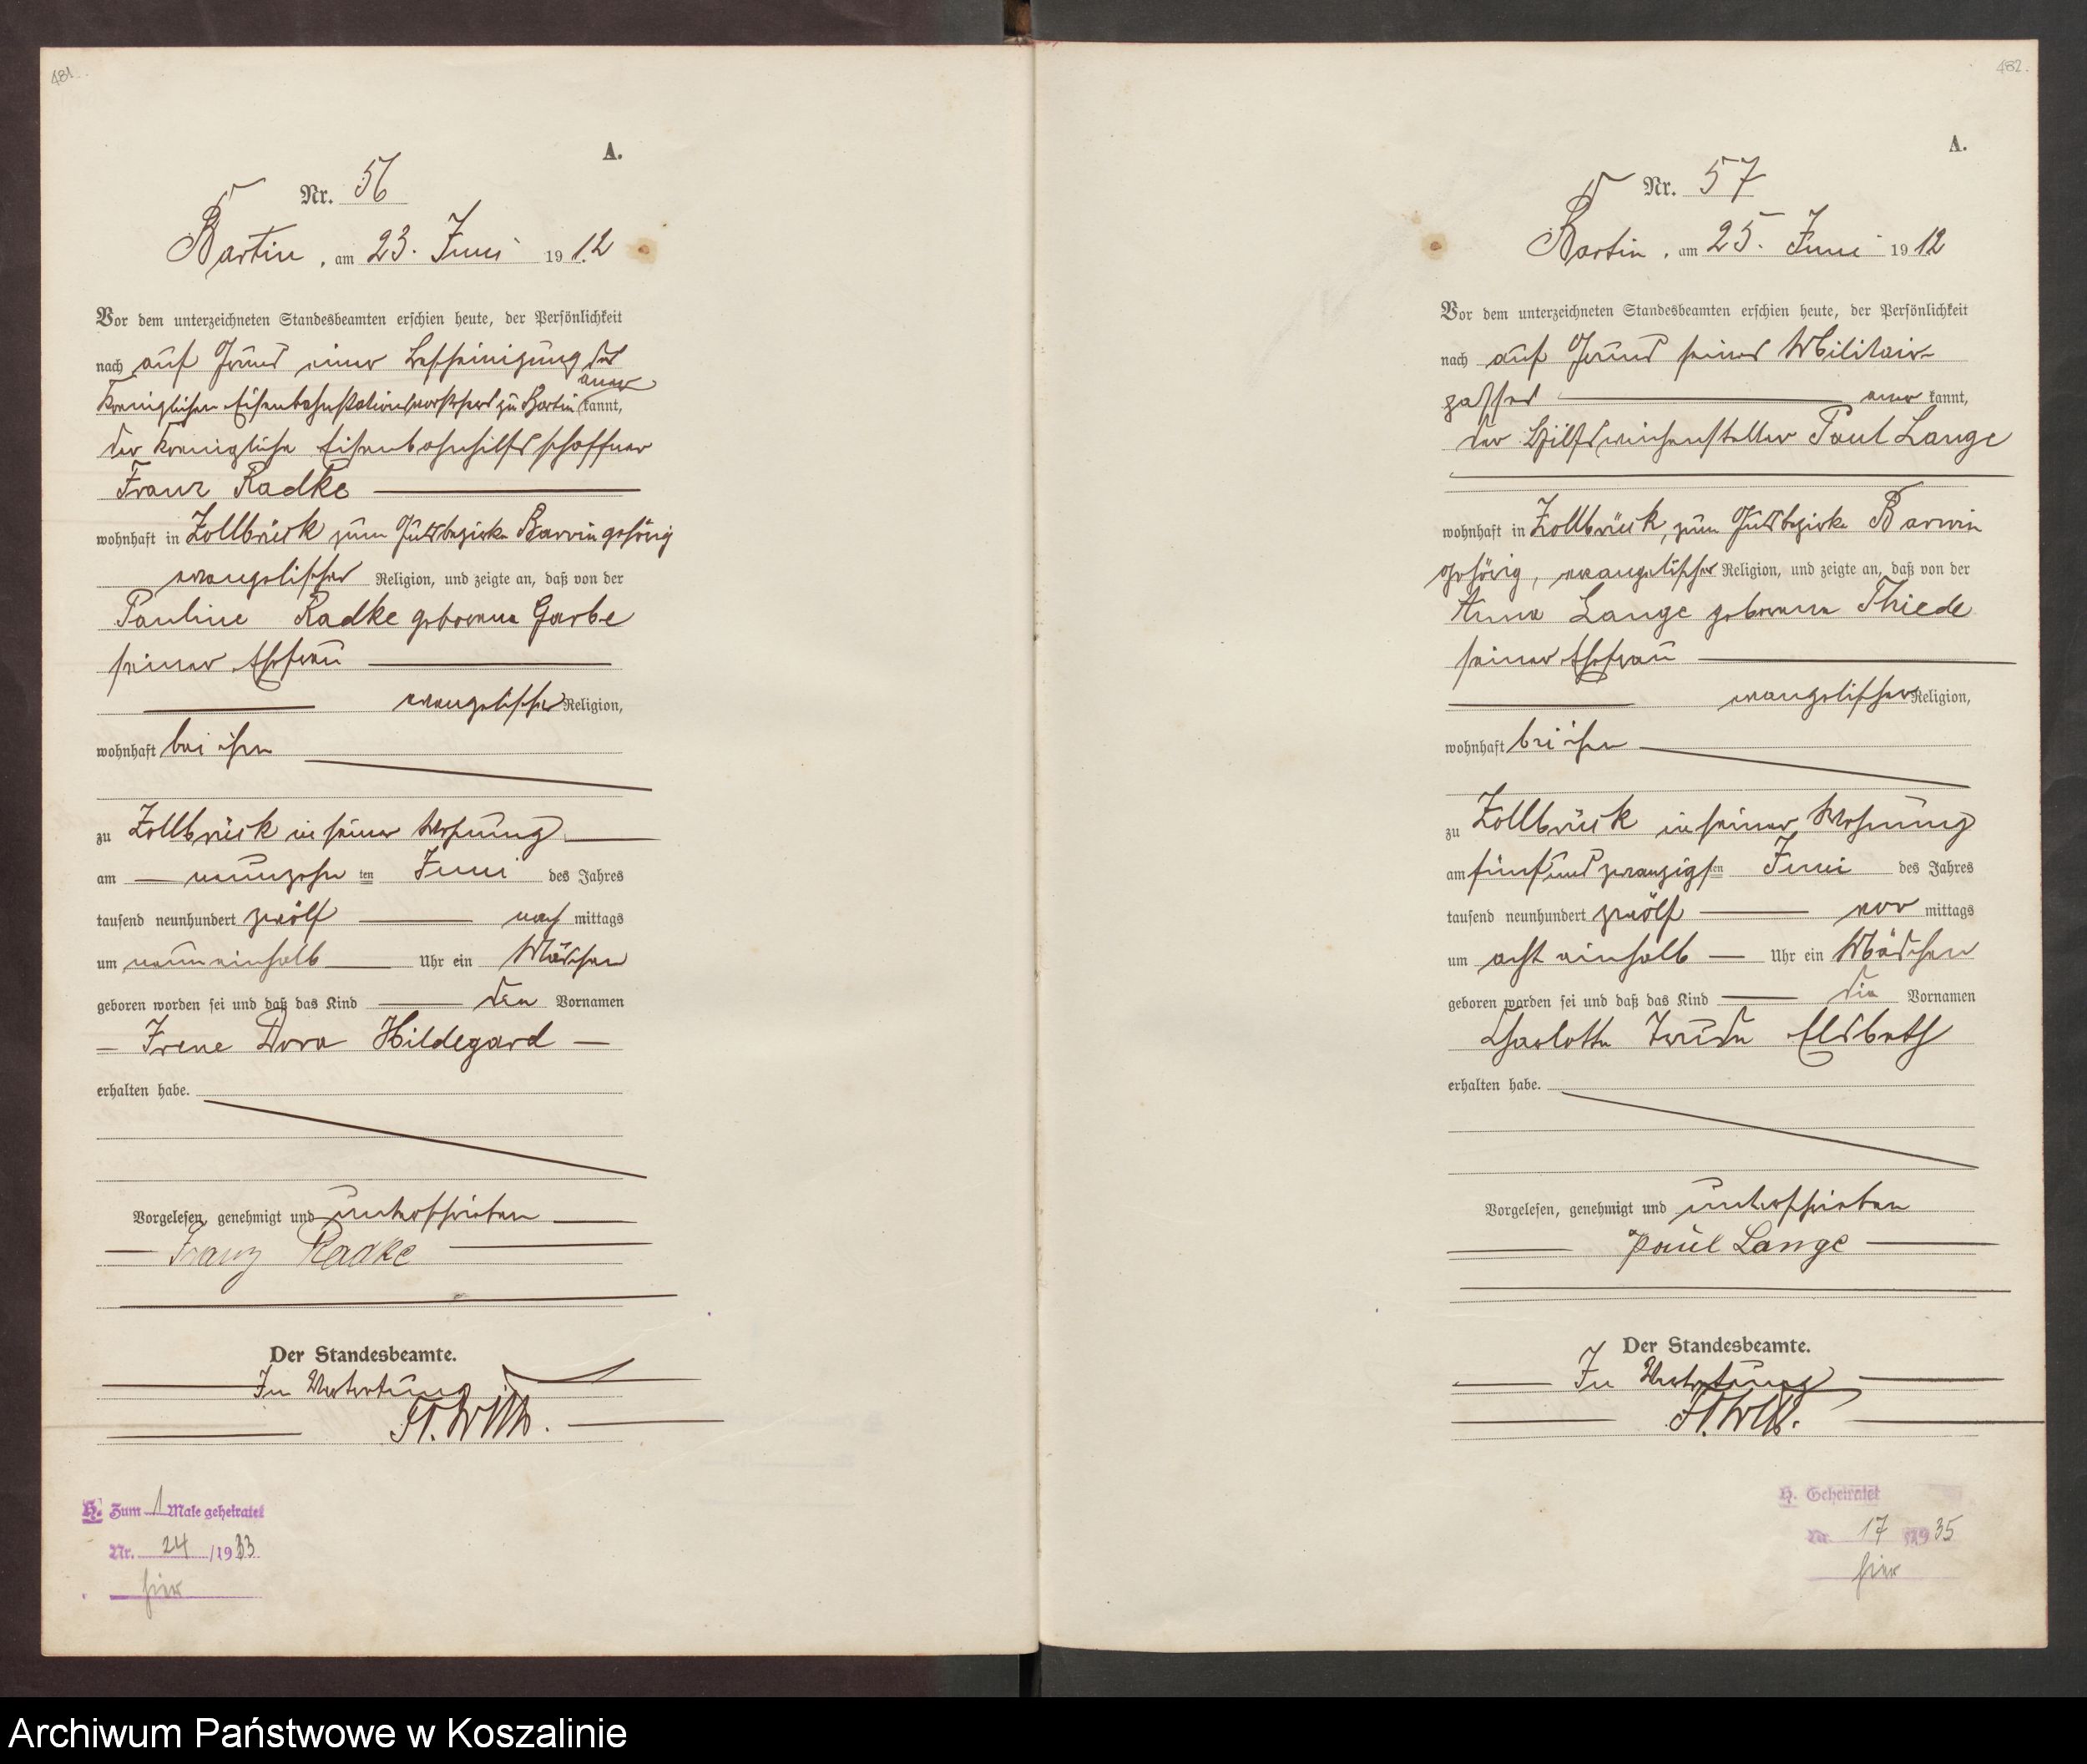 481.
A.
Nr. 56
Bartin, am 23. Juni 1912
Vor dem unterzeichneten Standesbeamten erschien heute, der Persönlichkeit
nach auf Grund einer Bescheinigung des
Koeniglichen Eisenbahnstationsvorstehers zu Bartin anerkannt,
der Koenigliche Eisenbahnhilfsschaffner
Franz Radke
wohnhaft in Zollbrück zum Gutsbezirke Barvin gehörig
evangelischer Religion, und zeigte an, daß von der
Pauline Radke geborene Garbe
seiner Ehefrau
evangelischer Religion,
wohnhaft bei ihm
zu Zollbrück in seiner Wohnung
am neunzehnten Juni des Jahres
tausend neunhundert zwölf nachmittags
um neuneinhalb Uhr ein Mädchen
geboren worden sei und daß das Kind den Vornamen
Irene Dora Hildegard
erhalten habe.
Vorgelesen, genehmigt und unterschrieben
Franz Radke
Der Standesbeamte.
In Vertretung
H. Zum 1 Male geheiratet
Nr. 24 /1933
hier
482.
A.
Nr. 57
Bartin, am 25. Juni 1912
Vor dem unterzeichneten Standesbeamten erschien heute, der Persönlichkeit
nach auf Grund seines Militair-
passes anerkannt,
der Hilfsweichensteller Paul Lange
wohnhaft in Zollbrück, zum Gutsbezirke Barvin
gehörig, evangelischer Religion, und zeigte an, daß von der
Anna Lange geborene Thiede
seiner Ehefrau
evangelischer Religion,
wohnhaft bei ihm
zu Zollbrück in seiner Wohnung
am fünfundzwanzigsten Juni des Jahres
tausend neunhundert zwölf vormittags
um acht einhalb Uhr ein Mädchen
geboren worden sei und daß das Kind die Vornamen
Charlotte Trude Elsbeth
erhalten habe.
Vorgelesen, genehmigt und unterschrieben
Paul Lange
Der Standesbeamte.
In Vertretung
H. Geheiratet
Nr. 17 /1935
hier
Archiwum Państwowe w Koszalinie